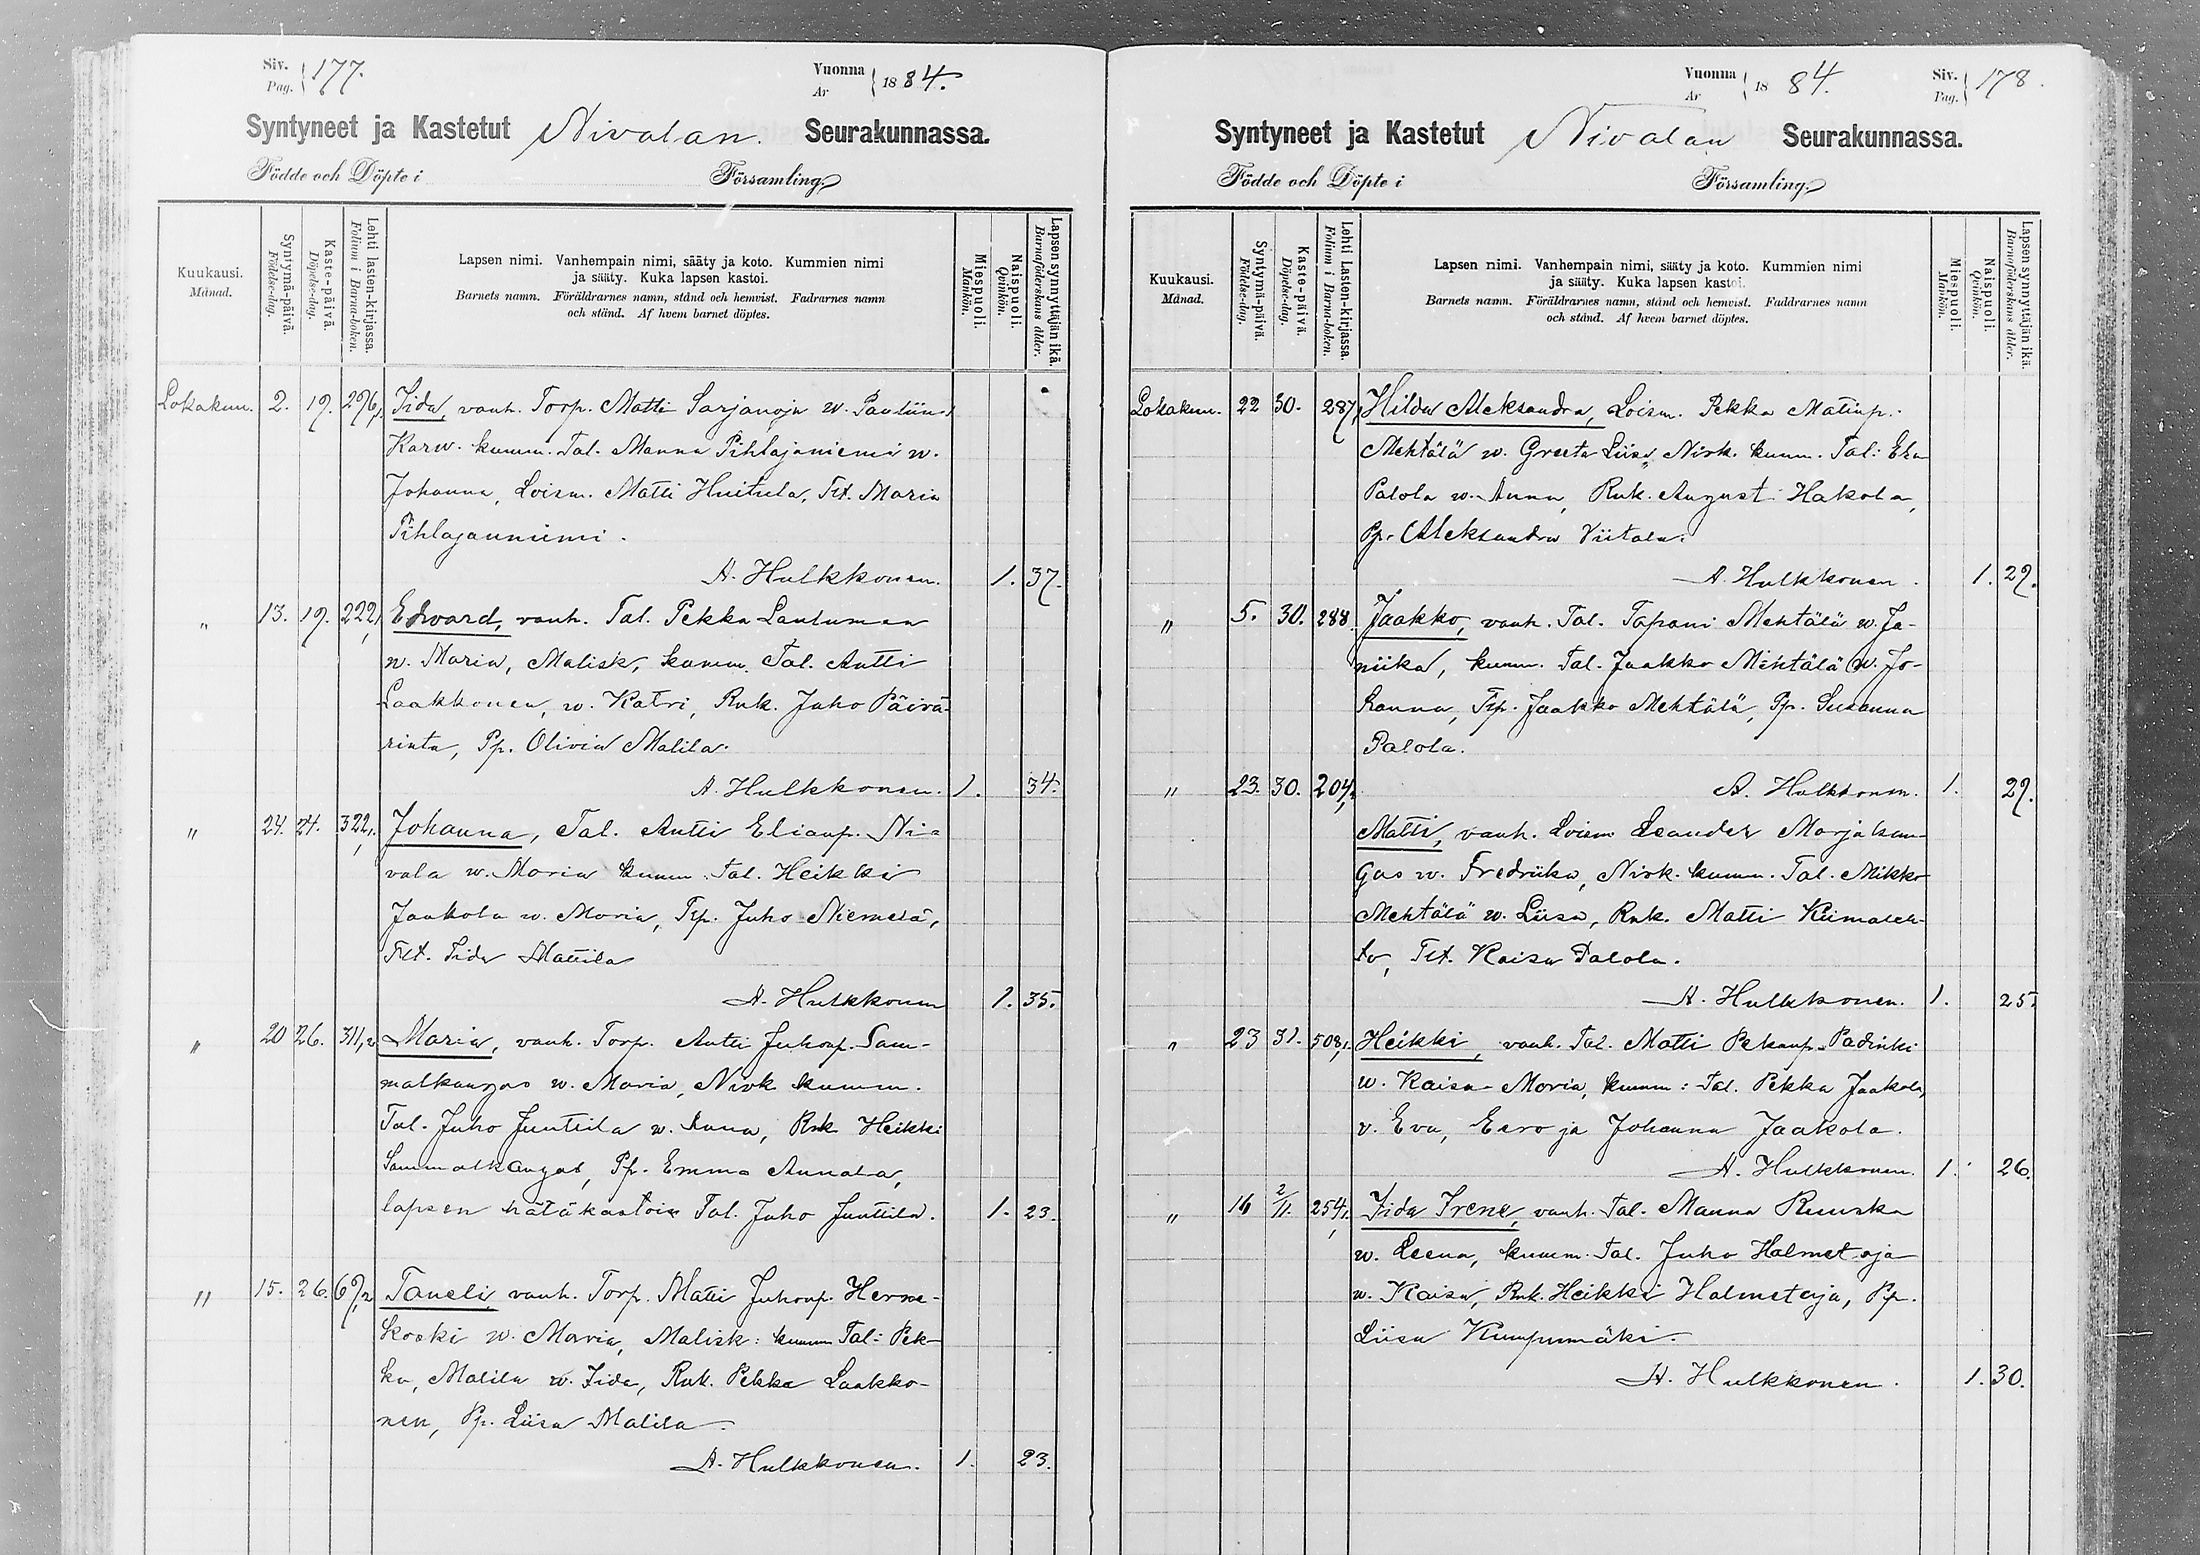 Siv. Pag. 177.
Vuonna År 1884.
Syntyneet ja Kastetut Nivalan. Seurakunnassa.
Födde och Döpte i Församling.
Kuukausi. Månad.
Syntymä-päivä. Födelse-dag.
Kaste-päivä. Döpelse-dag.
Lehti lasten-kirjassa. Folium i Barna-boken.
Lapsen nimi. Vanhempain nimi, sääty ja koto. Kummien nimi
ja sääty. Kuka lapsen kastoi.
Barnets namn. Föräldrarnes namn, stånd och hemvist. Fadrarnes namn
och stånd. Af hvem barnet döptes.
Miespuoli. Mankön.
Naispuoli. Qvinkön.
Lapsensynnyttäjän ikä. Barnaföderskans ålder.
Lokakuu. 2. 19. 296, Iida, vanh. Torp. Matti Sarjanoja w.
Karw. kumm. Tal. Manna Pihlajaniemi w.
Johanna, Loism. Matti Huitula, Tit. Maria
Pihlajanniemi.
A. Hulkkonen. 1. 37.
" 13. 19. 222, Edward, vanh. Tal. Pekka Lautuman
w. Maria, Malisk, kumm. Tal. Antti
Laakkonen, w. Katri, Rnk. Juho Päivä-
rinta, Pp. Olivia Malila.
A. Hulkkonen. 1. 34.
" 24. 24. 322, Johanna, Tal. Antti Elianp. Ni-
vala w. Maria kumm. Tal. Heikki
Jaakola w. Maria, Trp. Juho Niemelä,
Tit. Iida Mattila
A. Hulkkonen 1. 35.
" 20 26. 311,2 Maria, vanh. Torp. Antti Juhonp. Sam-
malkangas w. Maria, Nivk kumm.
Tal. Juho Junttila w. Anna, Rnk Heikki
Sammalkangas, Pp. Emma Annala,
lapsen hätäkastoi Tal. Juho Junttila. 1. 23.
" 15. 26. 67,2 Taneli, vanh. Torp. Matti Juhonp. Herne-
koski w. Maria, Malisk: kumm Tal: Pek-
ka, Malila w. Iida, Rnk. Pekka Laakko-
nen, Pp. Liisa Malila
A. Hulkkonen. 1. 23.
Vuonna År 1884.
Siv. Pag. 178.
Syntyneet ja Kastetut Nivalan Seurakunnassa.
Födde och Döpte i Församling.
Kuukausi. Månad.
Syntymä-päivä. Födelse-dag.
Kaste-päivä. Döpelse-dag.
Lehti Lasten-kirjassa. Folium i Barna-boken.
Lapsen nimi. Vanhempain nimi, sääty ja koto. Kummien nimi
ja sääty. Kuka lapsen kastoi.
Barnets namn. Föräldrarnes namn, stånd och hemvist. Faddrarnes namn
och stånd. Af hvem barnet döptes.
Miespuoli. Mankön.
Naispuoli. Qvinkön.
Lapsensynnyttäjän ikä. Barnaföderskans ålder.
Lokakuu. 22 30. 287, Hilda Aleksandra, Loism. Pekka Matinp.
Mehtälä w. Greeta Liisa, Nivk. kumm. Tal:
Palola w. Anna, Rnk. August Hakola,
Pp. Aleksandra Viitala.
A. Hulkkonen. 1. 29.
" 5. 30. 288. Jaakko, vanh. Tal. Tapani Mehtälä w. Ja-
niika, kumm. Tal. Jaakko Mehtälä w. Jo-
hanna, Trp. Jaakko Mehtälä, Pp. Susanna
Palola.
" 23. 30. 204, A. Hulkkonen. 1. 29.
Matti, vanh. Loism Leander Marjakan-
gas w. Fredriika, Nivk. kumm. Tal. Mikko
Mehtälä w. Liisa, Rnk. Matti Kiimaleh-
to, Tit. Kaisa Palola.
A. Hulkkonen. 1. 25.
" 23 31. 508, Heikki, vanh. Tal. Matti Pekanp. Padinki
w. Kaisa Maria, kumm: Tal. Pekka Jaakola,
v. Eva, Eero ja Johanna Jaakola.
A. Hulkkonen. 1. 26.
" 16 2/11. 254, Iida Irene, vanh. Tal. Manna Ruuska
w. Leena, kumm. Tal. Juho Halmetoja
w. Kaisa, Rnk. Heikki Halmetoja, Pp.
Liisa Kumpumäki.
A. Hulkkonen. 1. 30.